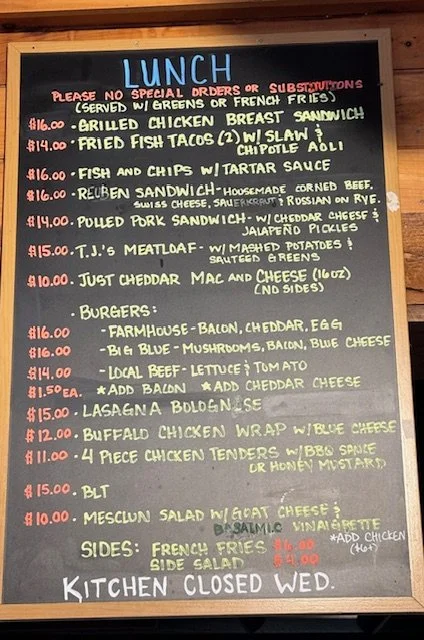 LUNCH
PLEASE NO SPECIAL ORDERS OR SUBSTITUTIONS
(SERVED W/ GREENS OR FRENCH FRIES)
$16.00 · GRILLED CHICKEN BREAST SANDWICH
$14.00 · FRIED FISH TACOS (2) W/ SLAW &
CHIPOTLE AOLI
$16.00 · FISH AND CHIPS W/ TARTAR SAUCE
$16.00 · REUBEN SANDWICH - HOUSEMADE CORNED BEEF,
SWISS CHEESE, SAUERKRAUT & RUSSIAN ON RYE.
$14.00 · PULLED PORK SANDWICH - W/ CHEDDAR CHEESE &
JALAPEÑO PICKLES
$15.00 · T.J.'S MEATLOAF - W/ MASHED POTATOES &
SAUTEED GREENS
$10.00 · JUST CHEDDAR MAC AND CHEESE (16 OZ)
(NO SIDES)
· BURGERS:
$16.00 - FARMHOUSE - BACON, CHEDDAR, EGG
$16.00 - BIG BLUE - MUSHROOMS, BACON, BLUE CHEESE
$14.00 - LOCAL BEEF - LETTUCE & TOMATO
$1.50 EA. *ADD BACON *ADD CHEDDAR CHEESE
$15.00 · LASAGNA BOLOGNESE
$12.00 · BUFFALO CHICKEN WRAP W/ BLUE CHEESE
$11.00 · 4 PIECE CHICKEN TENDERS W/ BBQ SAUCE
OR HONEY MUSTARD
$15.00 · BLT
$10.00 · MESCLUN SALAD W/ GOAT CHEESE &
BASALMIC VINAIGRETTE
*ADD CHICKEN
(+6+)
SIDES: FRENCH FRIES $6.00
SIDE SALAD $4.00
KITCHEN CLOSED WED.